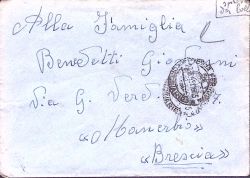 Alla Famiglia
Benedetti Giovanni
Via G. Verdi 7.
"Manerbio"
"Brescia"